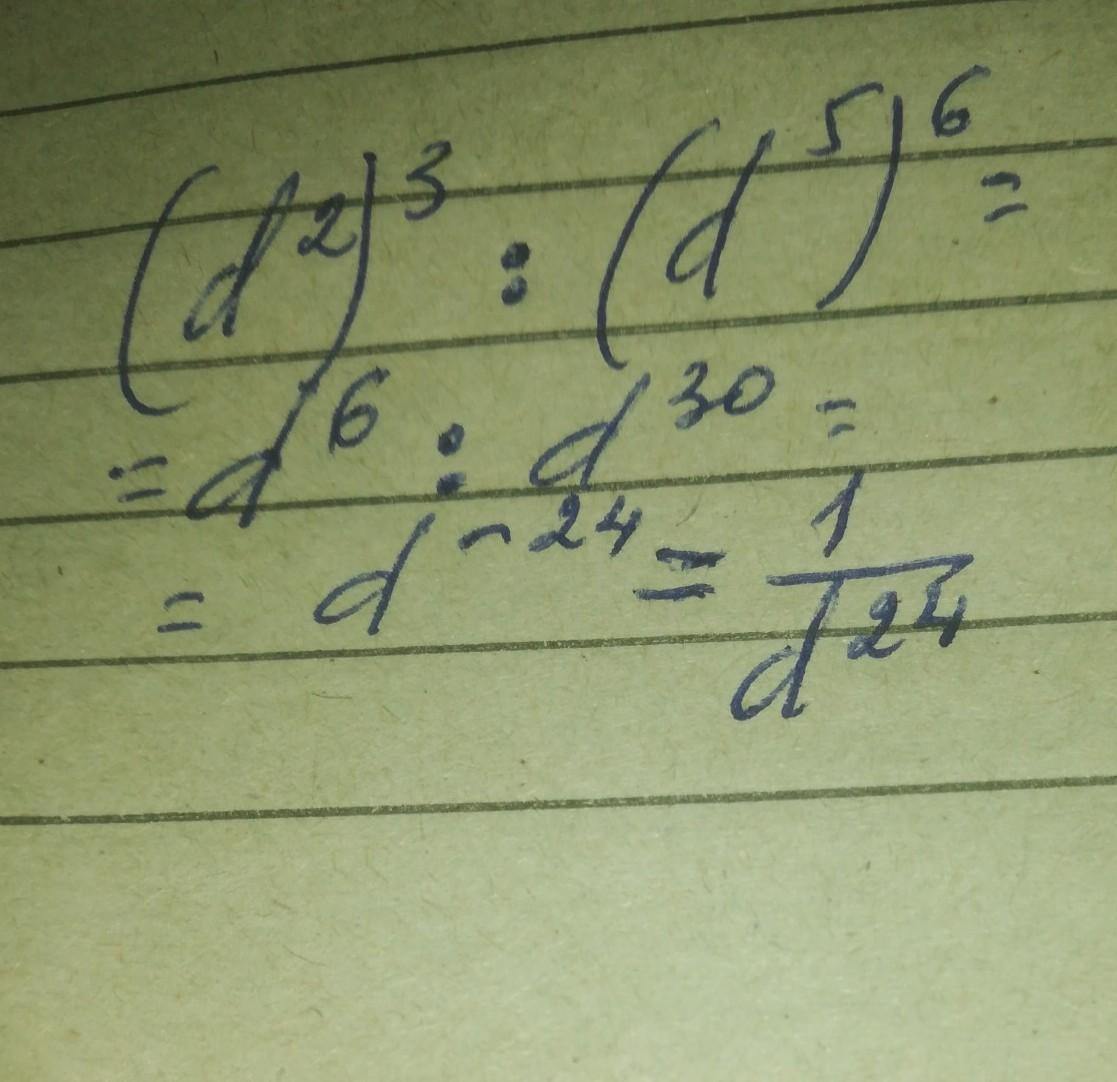 (d²)³ : (d⁵)⁶ =
= d⁶ : d³⁰ =
= d⁻²⁴ = 1/d²⁴